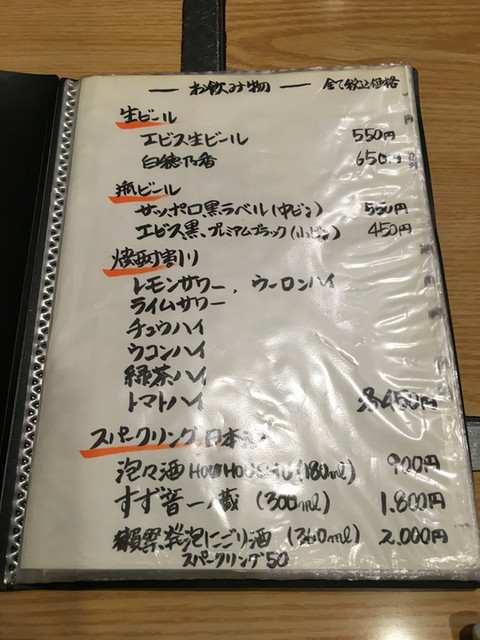 ― お飲み物 ― 全て税込価格
生ビール
エビス生ビール 550円
白穂乃香 650円
瓶ビール
サッポロ黒ラベル(中ビン) 550円
エビス黒、プレミアムブラック(小ビン) 450円
焼酎割り
レモンサワー, ウーロンハイ
ライムサワー
チュウハイ
ウコンハイ
緑茶ハイ
トマトハイ 各450円
スパークリング日本酒
泡々酒 HOUHOUSHU (180ml) 900円
すず音 一ノ蔵 (300ml) 1,800円
獺祭 発泡にごり酒 (360ml) 2,000円
スパークリング50